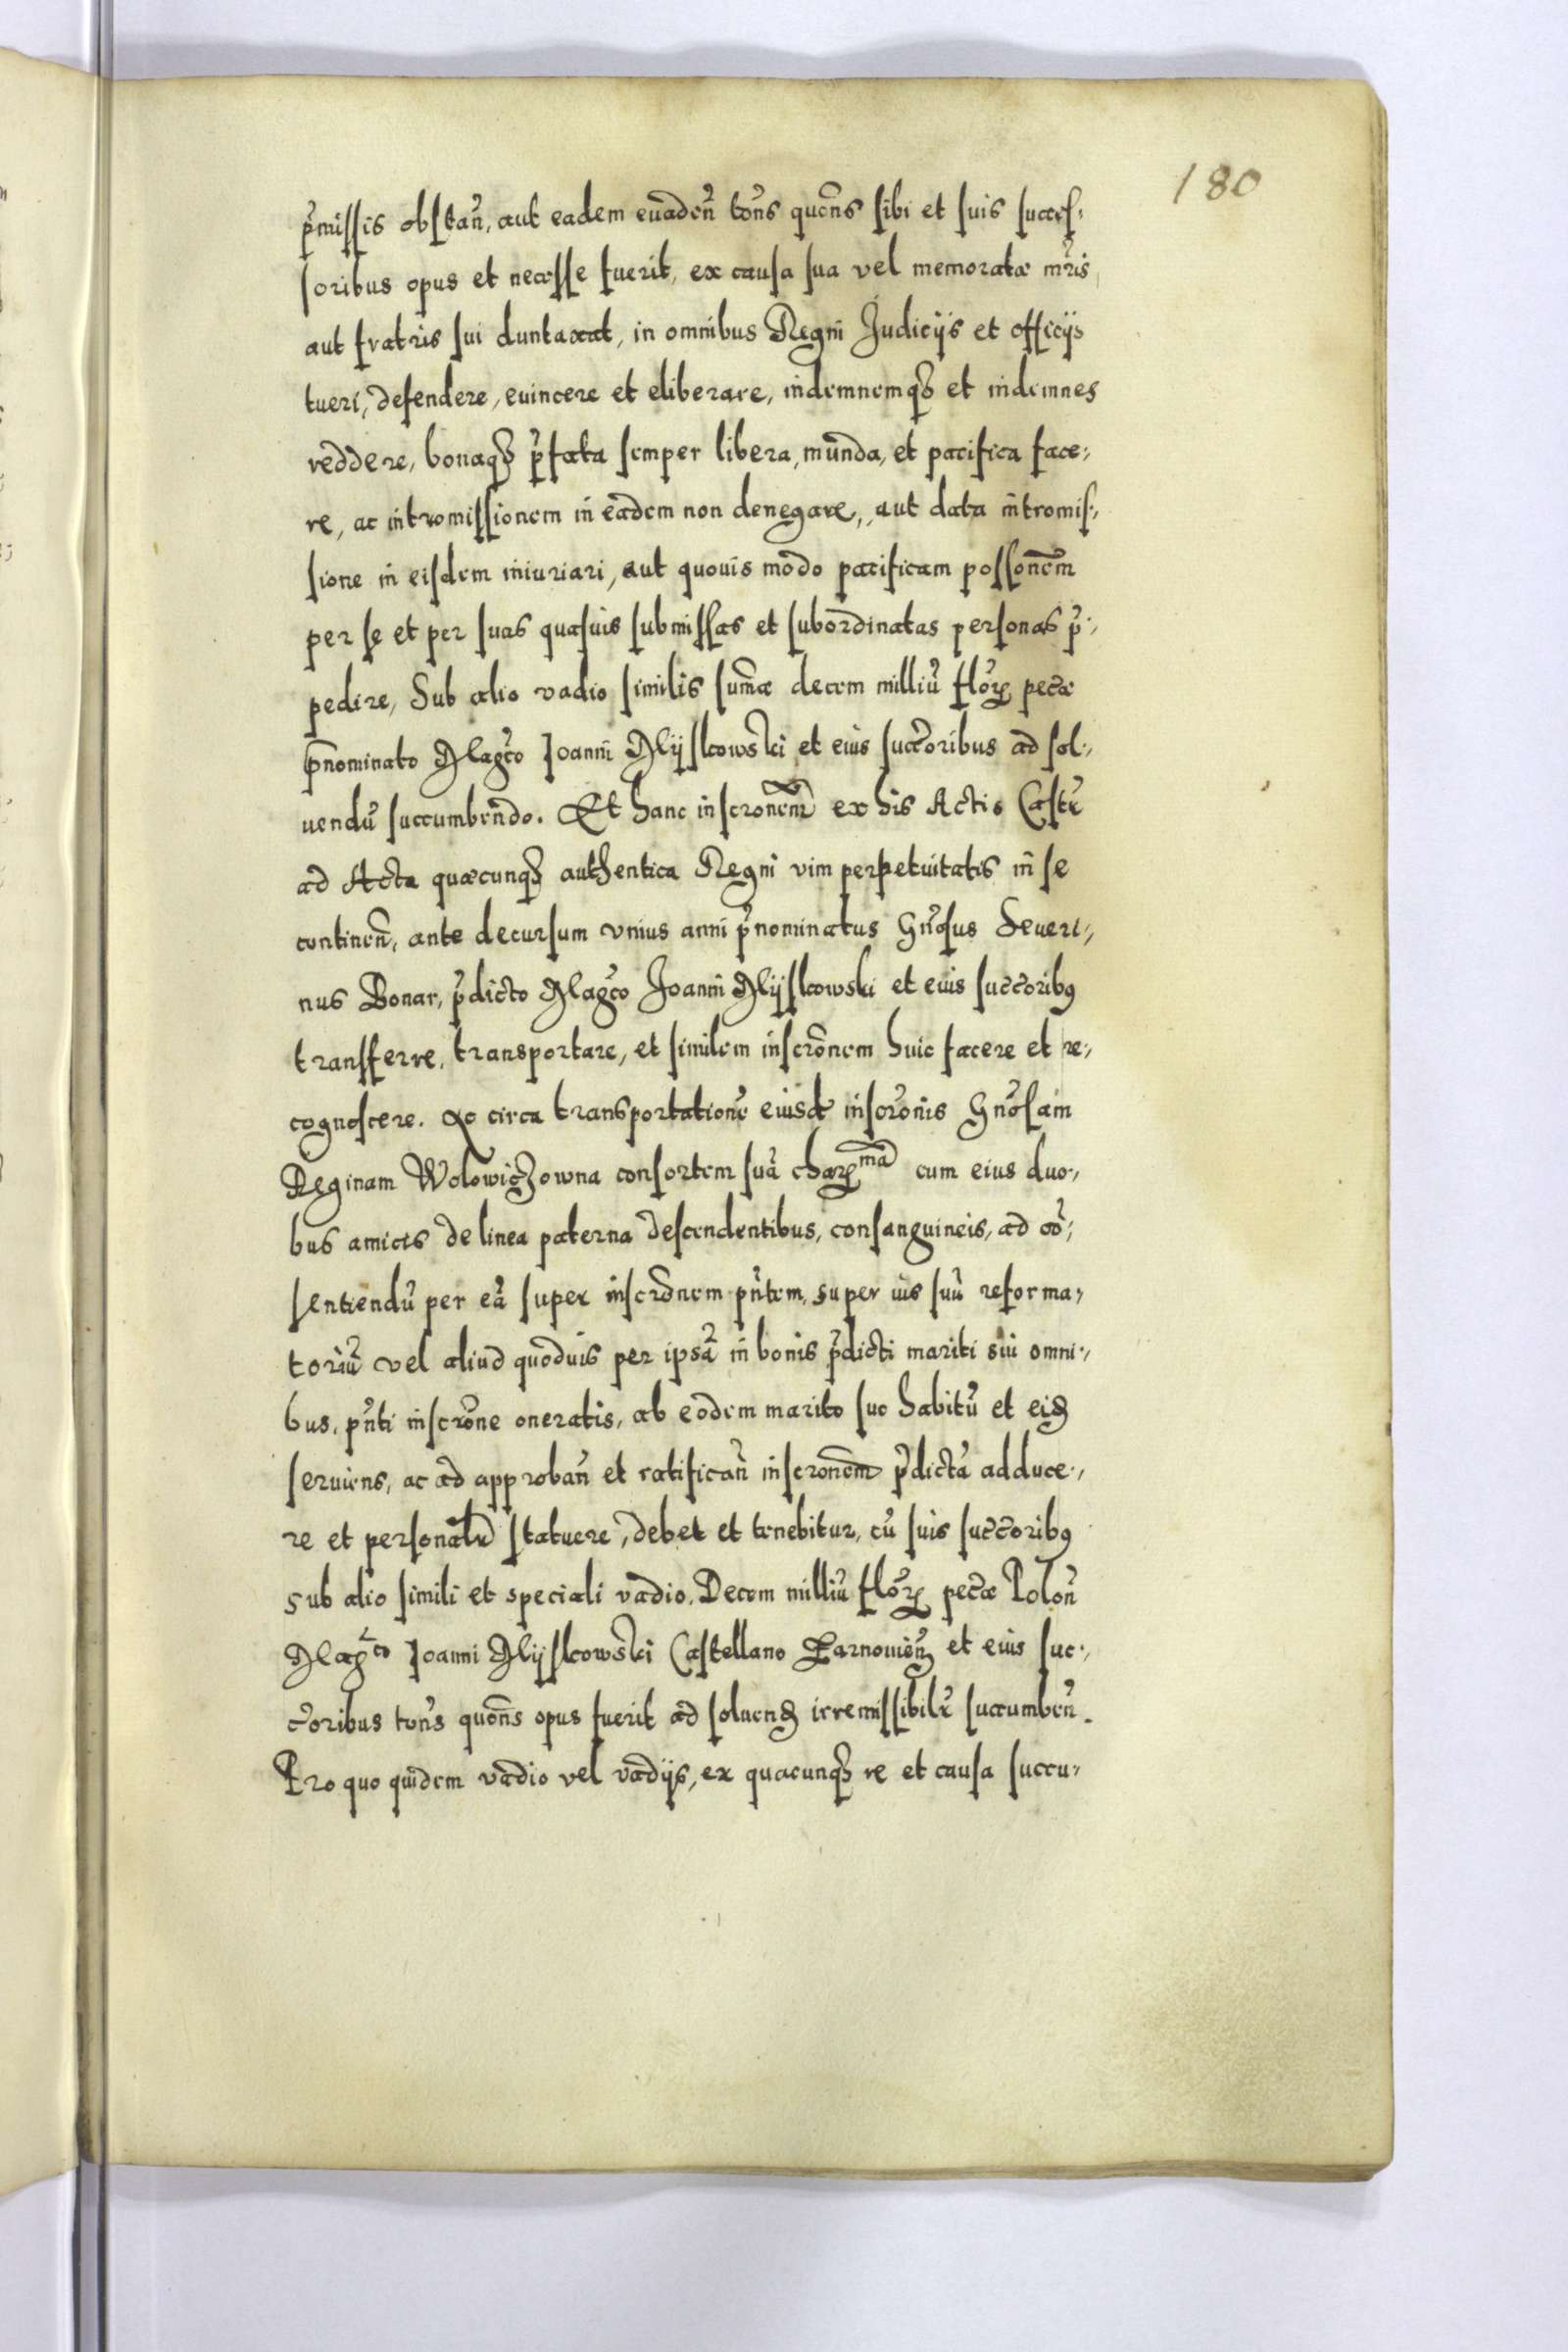 180
p̃missis obstañ, aut eadem euadeñ toñs quoñs sibi et suis succes-
soribus opus et necesse fuerit, ex causa sua vel memoratæ mr̃is,
aut fratris sui duntaxat, in omnibus Regni Judicijs et officijs
tueri, defendere, euincere et eliberare, indemnemqꝫ et indemnes
reddere, bonaqꝫ p̃fata semper libera, munda, et pacifica face-
re, ac intromissionem in eadem non denegare, aut data intromis-
sione in eisdem iniuriari, aut quouis modo pacificam possoñem
per se et per suas quasuis submissas et subordinatas personas p̃-
pedire, Sub alio vadio similis sum̃æ decem milliũ floꝝ pecæ
p̃nominato Magc̃o Joanni Mijskowski et eius succ̃oribus ad sol-
uendũ succumbendo. Et hanc inscroñem ex his Actis Castr̃
ad Acta quæcunqꝫ authentica Regni vim perpetuitatis in se
contineñ, ante decursum vnius anni p̃nominatus Gñosus Seueri-
nus Bonar, p̃dicto Magc̃o Joanni Mijskowski et eius succ̃oribꝰ
transferre, transportare, et similem inscrõnem huic facere et re-
cognoscere. Ac circa transportationẽ eiusd̃ inscrõnis Gñosam
Reginam Wolowiczowna consortem suã chaꝝmã cum eius duo-
bus amicis de linea paterna descendentibus, consanguineis, ad cõ-
sentiendũ per eã super inscrõnem pñtem, super ius suũ reforma-
toriũ vel aliud quoduis per ipsã in bonis p̃dicti mariti sui omni-
bus, pñti inscrõne oneratis, ab eodem marito suo habitũ et eid̃
seruiens, ac ad approbañ et ratificañ inscroñem p̃dictã adduce-
re et personalr̃ statuere, debet et tenebitur, cũ suis succ̃oribꝰ
sub alio simili et speciali vadio. Decem milliũ floꝝ pecæ Poloñ
Magco Joanni Mijskowski Castellano Zarnouieñ et eius suc-
c̃oribus toñs quoñs opus fuerit ad soluend̃ irremissibilr̃ succumbeñ.
Pro quo quidem vadio vel vadijs, ex quacunqꝫ re et causa succu-